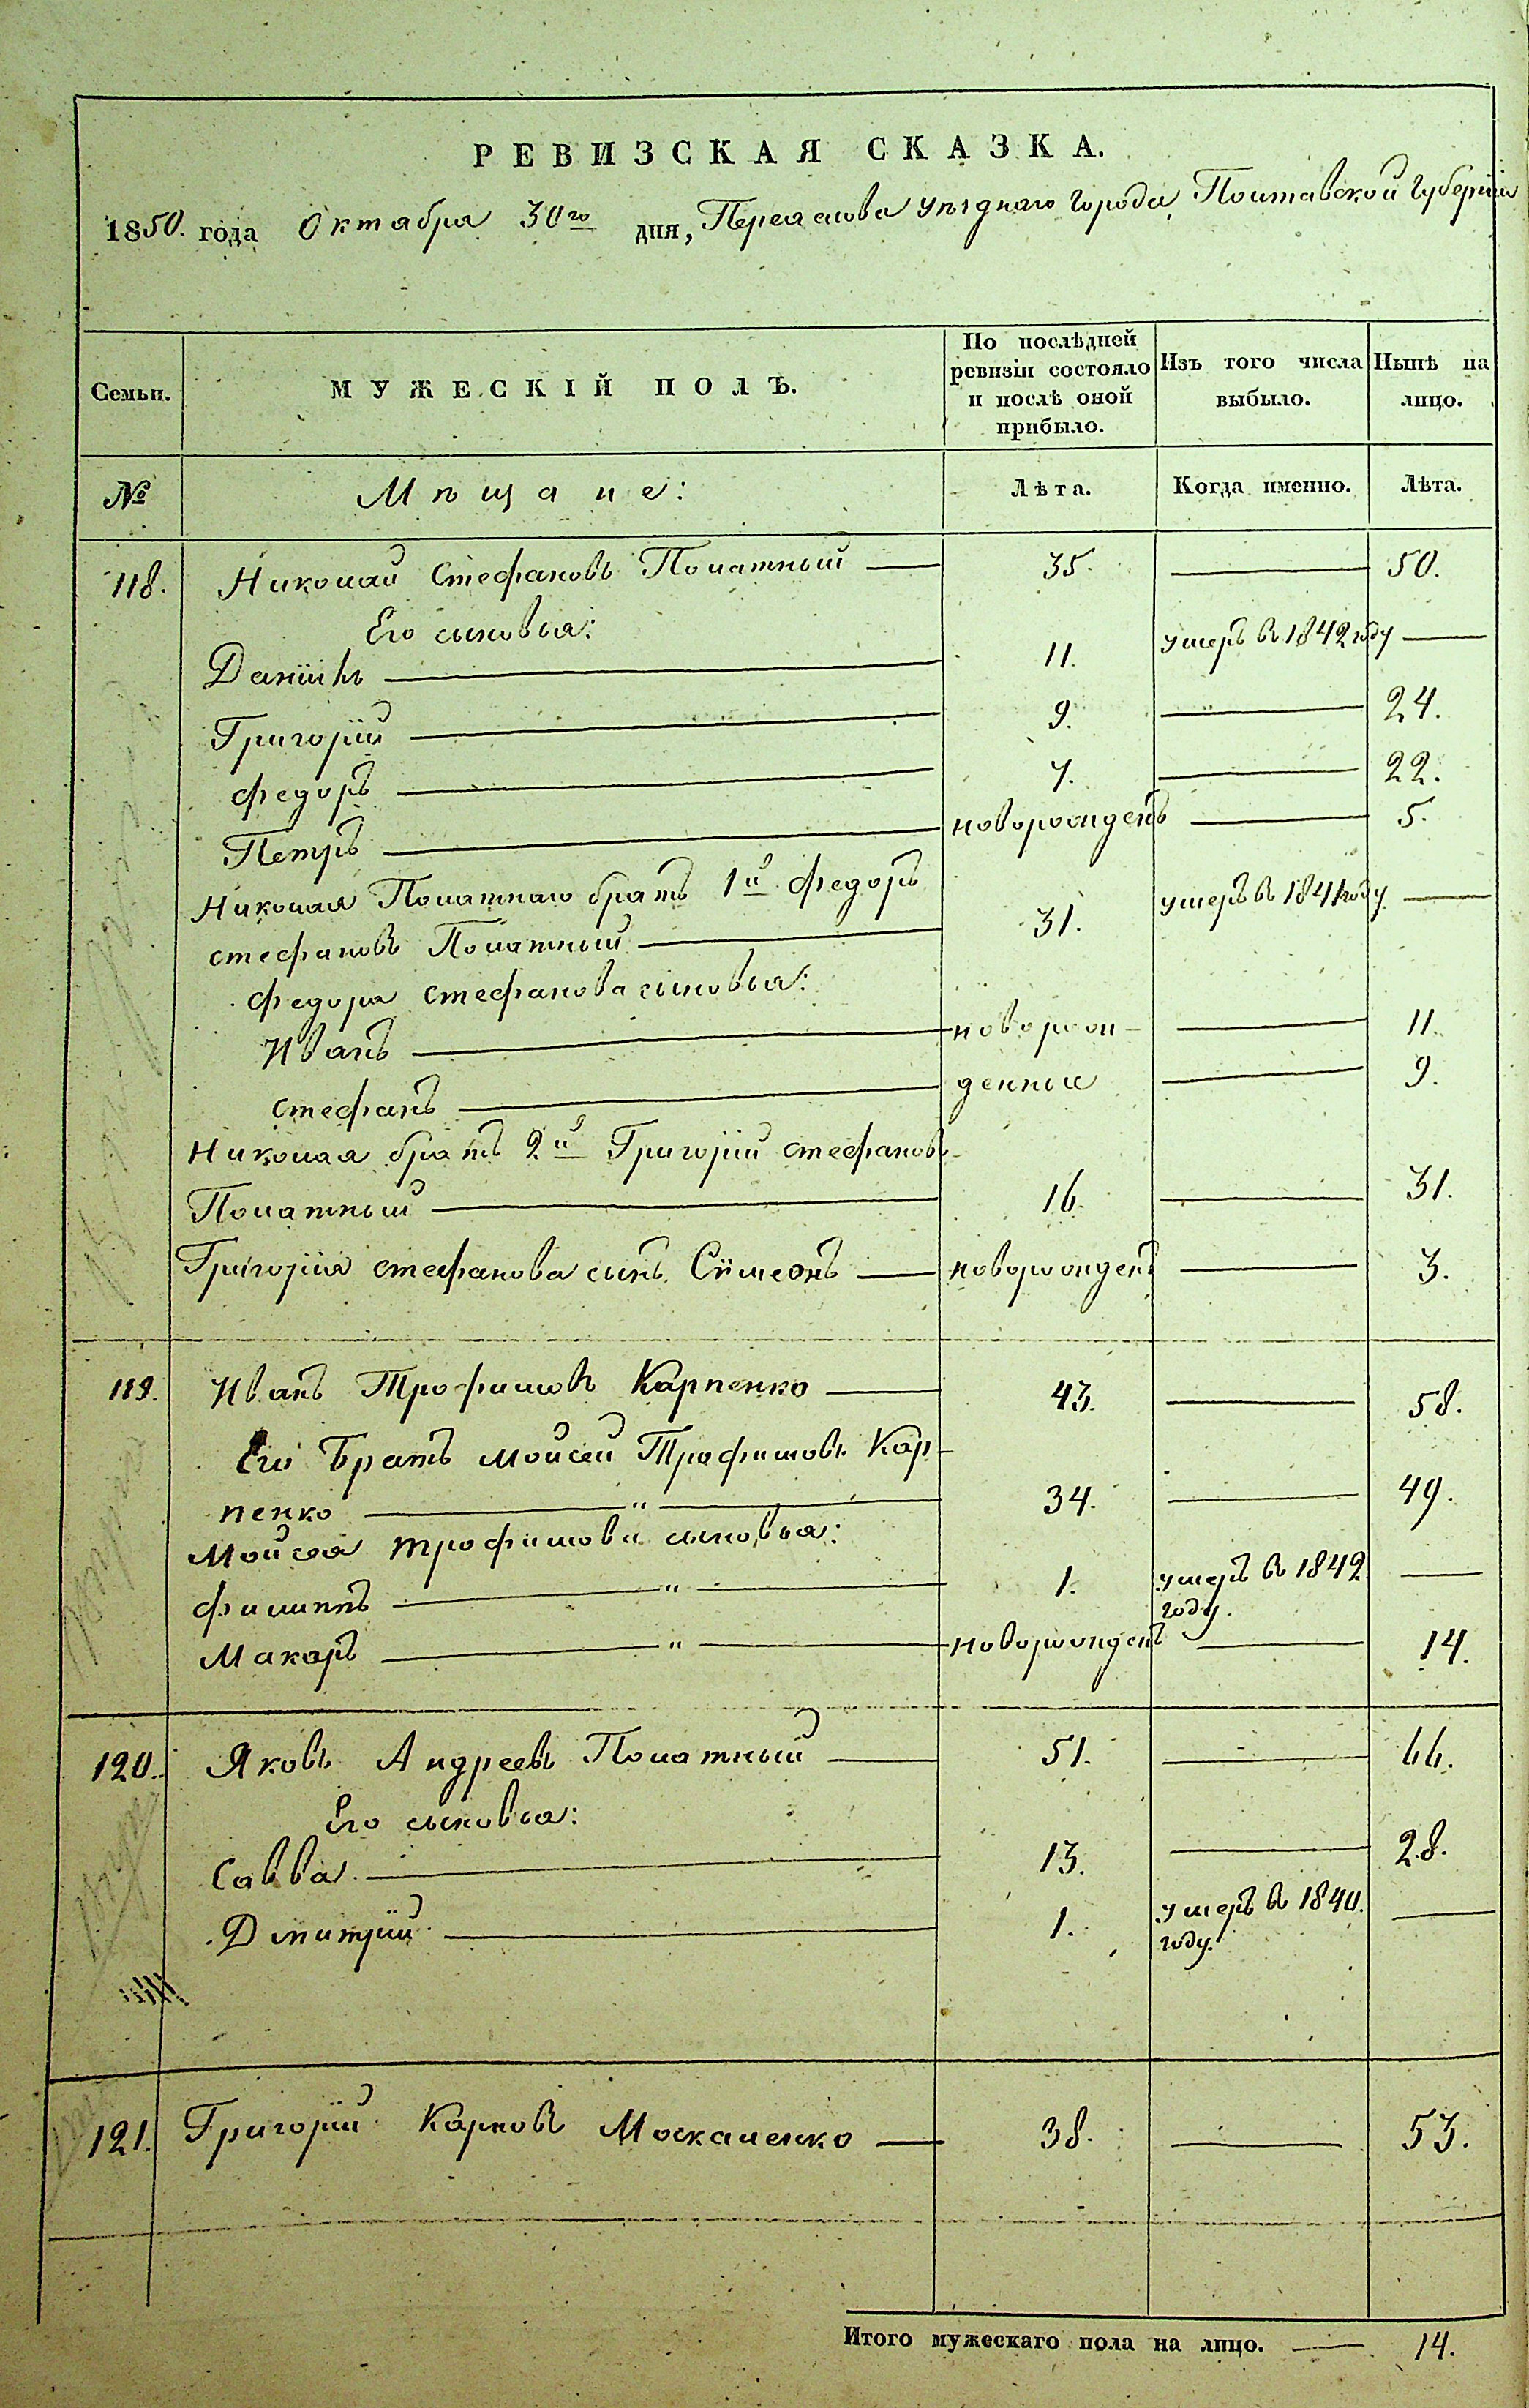 РЕВИЗСКАЯ СКАЗКА.
1850. года Октабря 30го дня, Переяслова Уѣзднаго города, Полтавской Губерніи
Семьи. МУЖЕСКІЙ ПОЛЪ. По послѣдней ревизіи состояло и послѣ оной прибыло. Изъ того числа выбыло. Нынѣ на лицо.
№ Мѣщане: Лѣта. Когда именно. Лѣта.
118. Николай Стефановъ Полатный — 35. — 50.
Его сыновья:
Даніилъ — 11. умеръ въ 1842 году —
Григорій — 9. — 24.
Федоръ — 7. — 22.
Петръ — новорожденъ — 5.
Николая Полатнаго братъ 1й Федоръ
Стефановъ Полатный — 31. умеръ въ 1841 году —
Федора Стефанова сыновья:
Иванъ — новорож- — 11.
Стефанъ — денные — 9.
Николая братъ 2й Григорій Стефановъ
Полатный — 16. — 31.
Григорія Стефанова сынъ Сѵмеонъ — новорожденъ — 3.
119. Иванъ Трофимовъ Карпенко — 43. — 58.
Его братъ Мойсей Трофимовъ Кар-
пенко — " — 34. — 49.
Мойсея Трофимова сыновья:
Филиппъ — " — 1. умеръ въ 1842 году. —
Макаръ — " — новорожденъ — 14.
120. Яковъ Андреевъ Полатный — 51. — 66.
Его сыновья:
Савва — 13. — 28.
Дмитрій — 1. умеръ въ 1840. году. —
121. Григорій Карповъ Москаленко — 38. — 53.
Итого мужескаго пола на лицо. — 14.